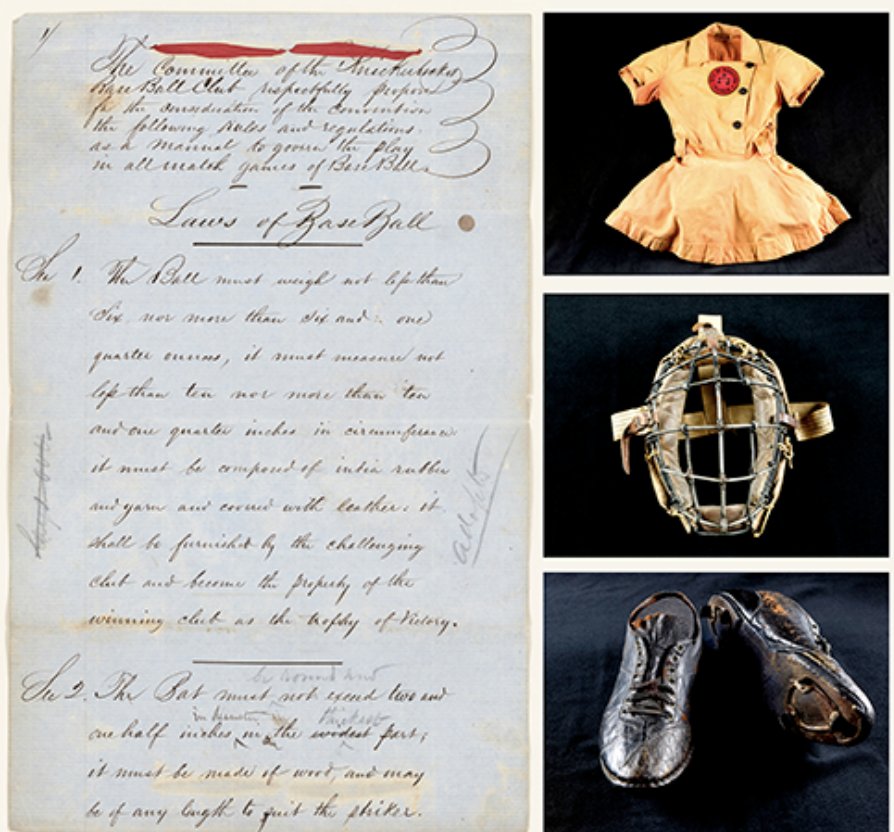 1/
The Committee of the Knickerbocker
Base Ball Club respectfully propose
for the consideration of the convention
the following Rules and regulations.
as a manual to govern the play
in all match games of Base Ball.
Laws of Base Ball
Sec 1. The Ball must weigh not less than
Six nor more than Six and one
quarter ounces, it must measure not
less than ten nor more than ten
and one quarter inches in circumference.
it must be composed of india rubber
and yarn and covered with leather. it
shall be furnished by the challenging
club and become the property of the
winning club as the trophy of Victory.
adopted
be round and
Sec 2. The Bat must not exceed two and
in diameter thickest
one half inches in the widest part;
it must be made of wood, and may
be of any length to suit the striker.